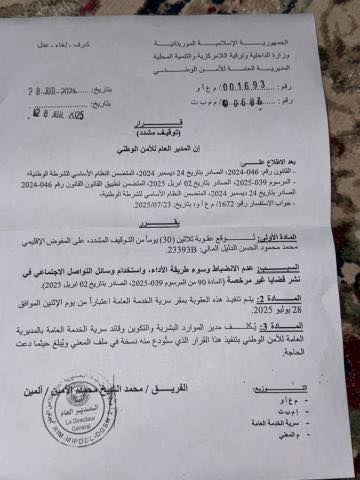 الجمهورية الإسلامية الموريتانية
شرف - إخاء - عدل
وزارة الداخلية وترقية اللامركزية والتنمية المحلية
المديرية العامة للأمن الوطني
رقم: 001693 / م ع أ و
بتاريخ: 28 JUIL
رقم: / م م ب ت
بتاريخ: 28 JUIL 2025
قـــرار
(توقيف مشدد)
إن المدير العام للأمن الوطني
بعد الاطلاع علــى:
- القانون رقم: 046-2024 الصادر بتاريخ 24 ديسمبر 2024، المتضمن النظام الأساسي للشرطة الوطنية؛
- المرسوم 039-2025، الصادر بتاريخ 02 ابريل 2025، المتضمن تطبيق القانون رقم 046-2024
الصادر بتاريخ 24 ديسمبر 2024، المتضمن النظام الأساسي للشرطة الوطنية.
- جواب الاستفسار رقم: 1672/ م ع أ و، بتاريخ: 2025/07/23.
يقــرر
المادة الأولى: توقع عقوبة ثلاثين (30) يوماً من التوقيف المشدد، على المفوض الإقليمي
محمد محمود الحسن الدليل المالي: 23393B.
السبب: عدم الانضباط وسوء طريقة الأداء، واستخدام وسائل التواصل الاجتماعي في
نشر قضايا غير مرخصة (المادة 90 من المرسوم 039-2025، الصادر بتاريخ 02 ابريل 2025).
المادة 2: يتم تنفيذ هذه العقوبة بمقر سرية الخدمة العامة اعتباراً من يوم الإثنين الموافق
28 يوليو 2025.
المادة 3: يُكلف مدير الموارد البشرية والتكوين وقائد سرية الخدمة العامة بالمديرية
العامة للأمن الوطني بتنفيذ هذا القرار الذي ستُودع منه نسخة في ملف المعني ويُبلغ حيثما دعت
الحاجة.
الفريق / محمد الشيخ محمد الأمين / ألمين
التوزيع:
- م ع أ و
- م ب ت
- سرية الخدمة العامة
- م المعني
المدير العام
Le Directeur
Général
RIM-MIPDDL-DGSN